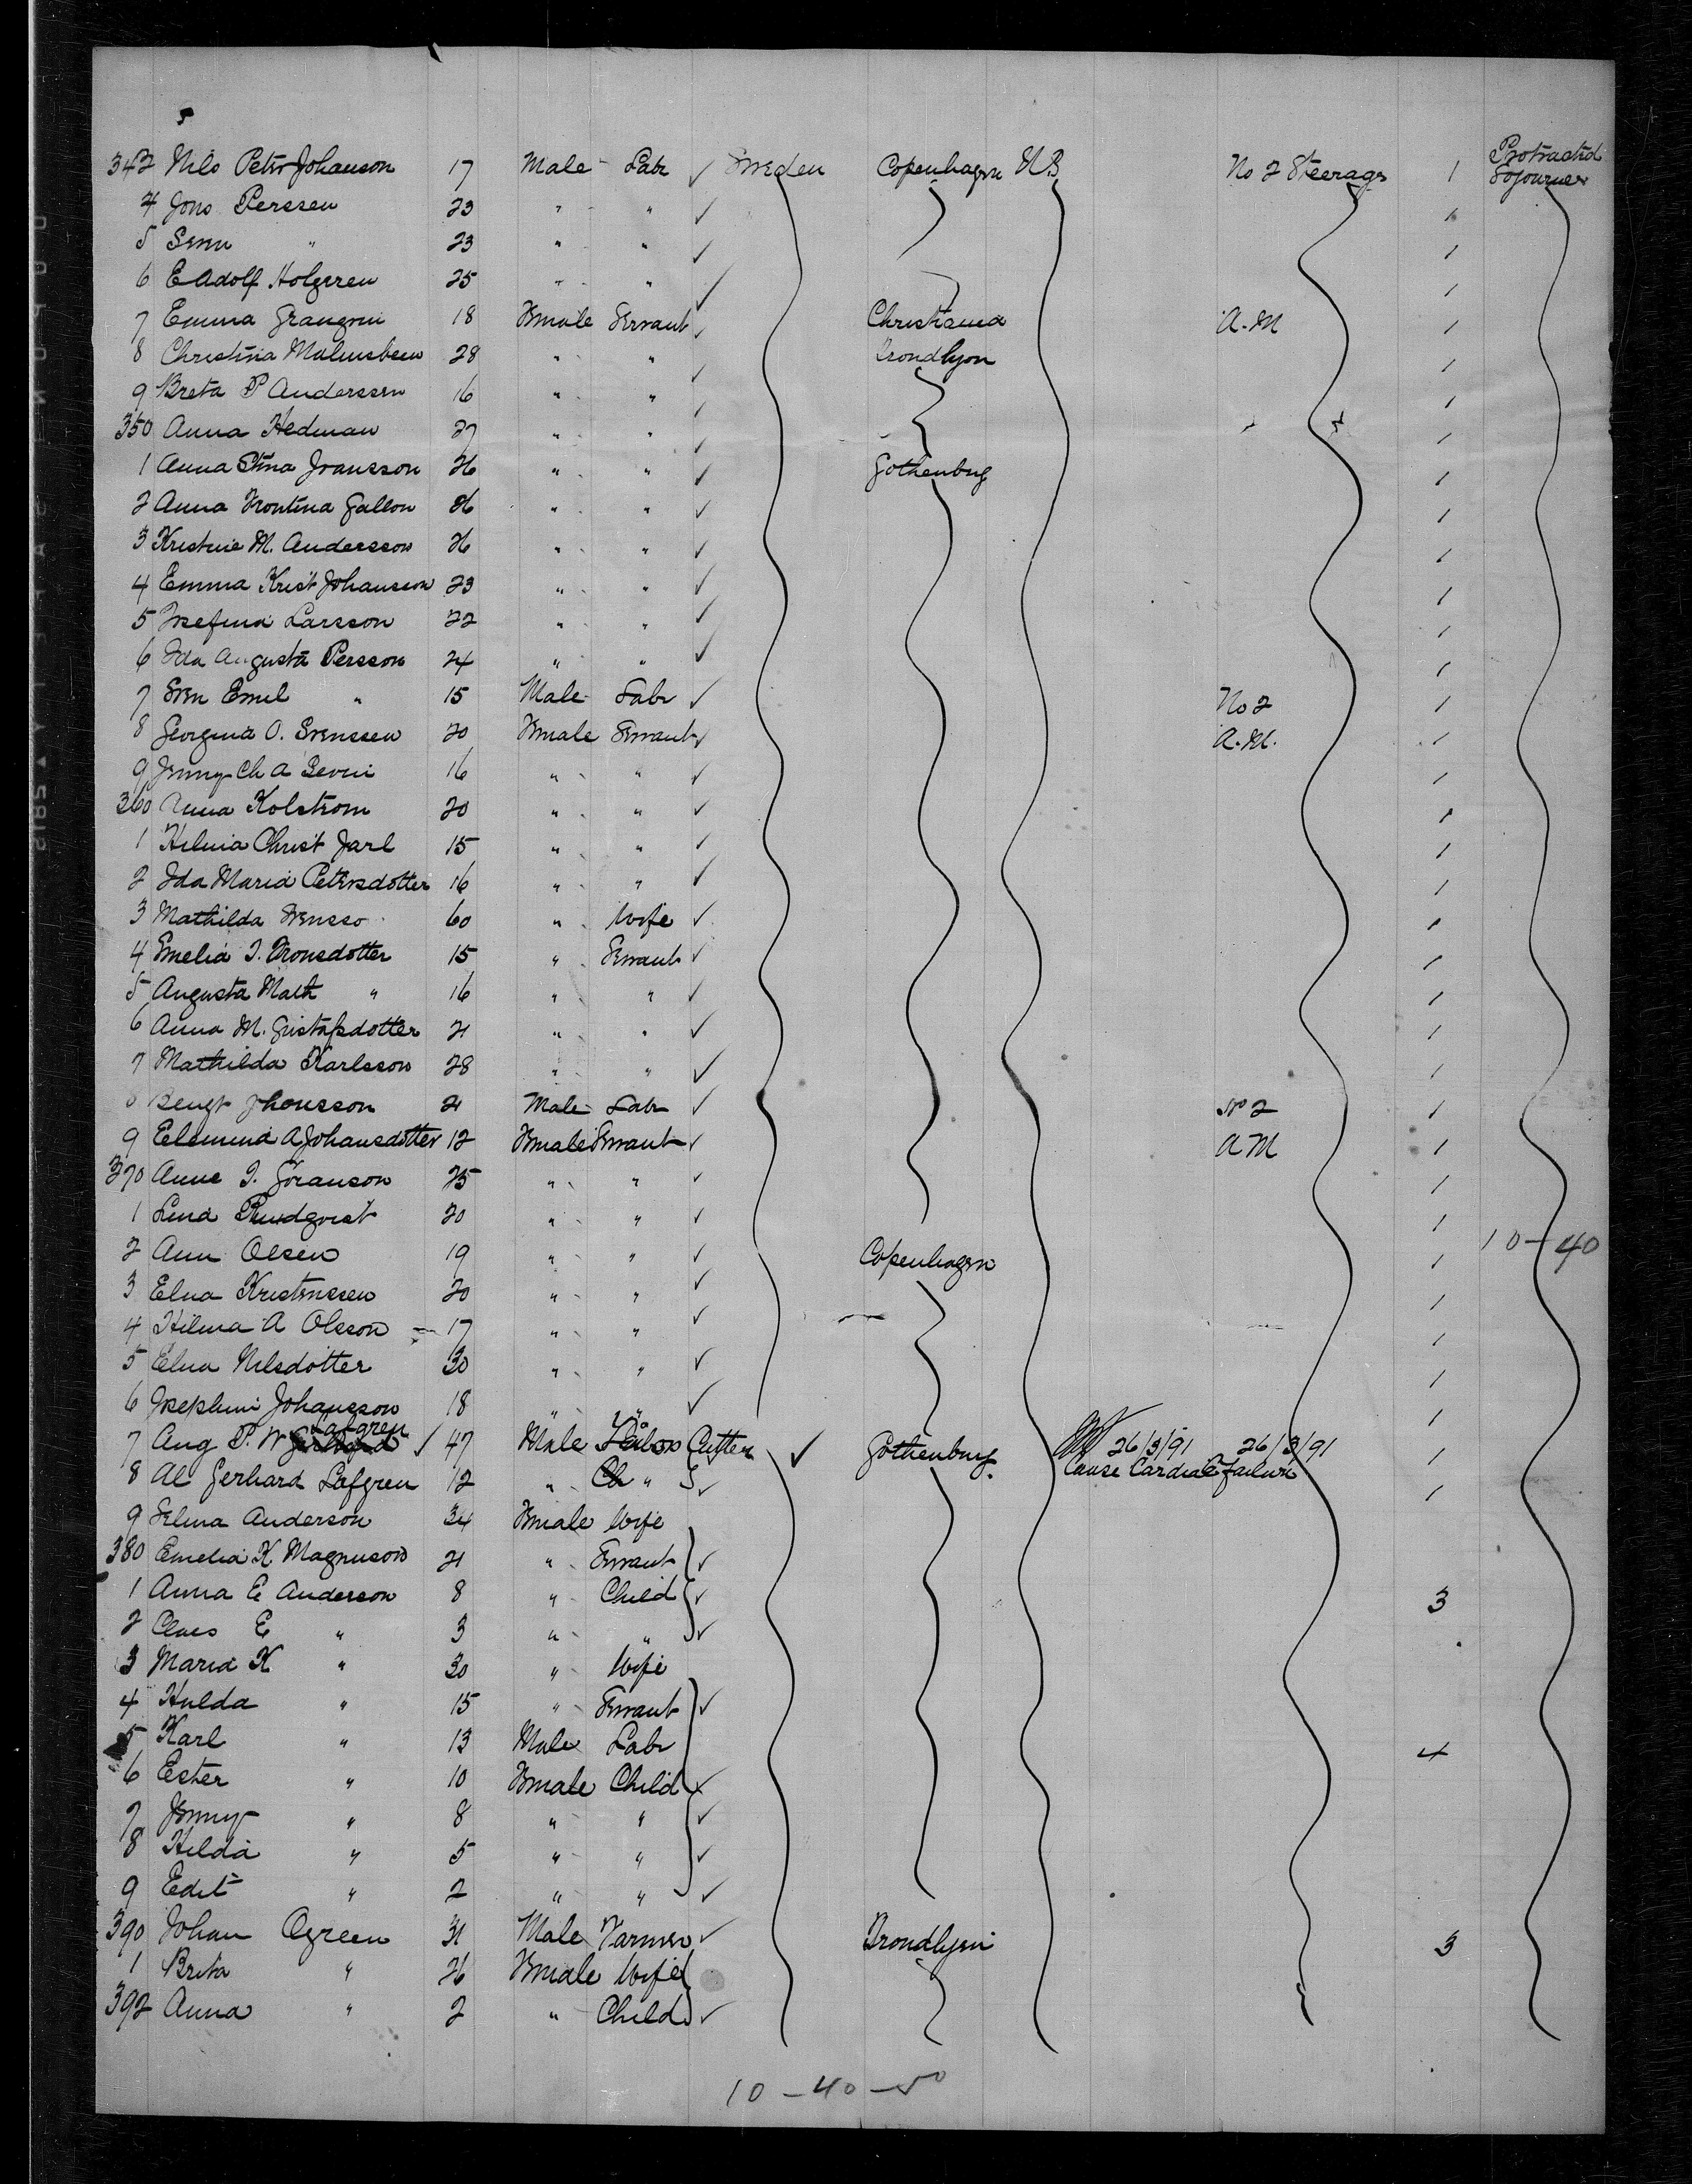 342 Nils Petr Johanson 17 Male Labr ✓ Sweden Copenhagen N.B No 2 Steerage 1 Protracted Sojourner
4 Jons Perssen 23 " " ✓ 1
5 Sven " 23 " " ✓ 1
6 E Adolf Holgrren 25 " " ✓ 1
7 Emma 18 Female Servant ✓ Christiania A.M 1
8 Christina 28 " " ✓ Trondhjem 1
9 Breta P Anderssen 16 " " ✓ 1
350 Anna Hedman 27 " " ✓ 1
1 Anna Stina Joansson 26 " " ✓ Gothenburg 1
2 Anna Frontina Gallon 26 " " ✓ 1
3 Kristine M. Andersson 26 " " ✓ 1
4 Emma Krist Johansson 23 " " ✓ 1
5 Josefina Larsson 22 " " ✓ 1
6 Ida Augusta Persson 24 " " ✓ 1
7 Sven Emil " 15 Male Labr ✓ No 2 1
8 Georgina O. Svenssen 20 Female Servant ✓ A.M. 1
9 Jenny Ch A 16 " " ✓ 1
360 Anna Kolstrom 20 " " ✓ 1
1 Hilma Christ Jarl 15 " " ✓ 1
2 Ida Maria Petersdotter 16 " " ✓ 1
3 Mathilda Svensso 60 " Wife ✓ 1
4 Emelia I. 15 " Servant ✓ 1
5 Augusta Math " 16 " " ✓ 1
6 Anna M. Gustafsdotter 21 " " ✓ 1
7 Mathilda Karlsson 28 " " ✓ 1
8 Bengt Jhonsson 21 Male Labr ✓ No 2 1
9 A Johansdotter 12 Female Servant ✓ A M 1
370 Anna I. Goranson 25 " " ✓ 1
1 Lina 20 " " ✓ 1
2 Ann Olsen 19 " " ✓ Copenhagen 1 10-40
3 Elna Kristenssen 20 " " ✓ 1
4 Hilma A Olsson 17 " " ✓ 1
5 Elna Nilsdotter 30 " " ✓ 1
6 Josephini Johansson 18 " " ✓ 1
Lofgren
7 Aug P. W ✓ 47 Male Cutter ✓ Gothenburg 26/3/91 26/3/91 1
8 Al Gerhard Lofgren 12 " Ch " ✓ Cause Cardiac failure 1
9 Selma Anderson 34 Female Wife
380 Emelia K Magnuson 21 " Servant ✓
1 Anna E Anderson 8 " Child ✓ 3
2 Claes E " 3 " " ✓
3 Maria K " 30 " Wife
4 Hulda " 15 " Servant ✓
5 Karl " 13 Male Labr 4
6 Ester " 10 Female Child ✓
7 Jenny " 8 " " ✓
8 Hilda " 5 " " ✓
9 Edit " 2 " " ✓
390 Johan Ogreen 31 Male Farmer ✓ Trondhjem 3
1 Brita " 26 Female Wife
392 Anna " 2 " Child ✓
10-40-50